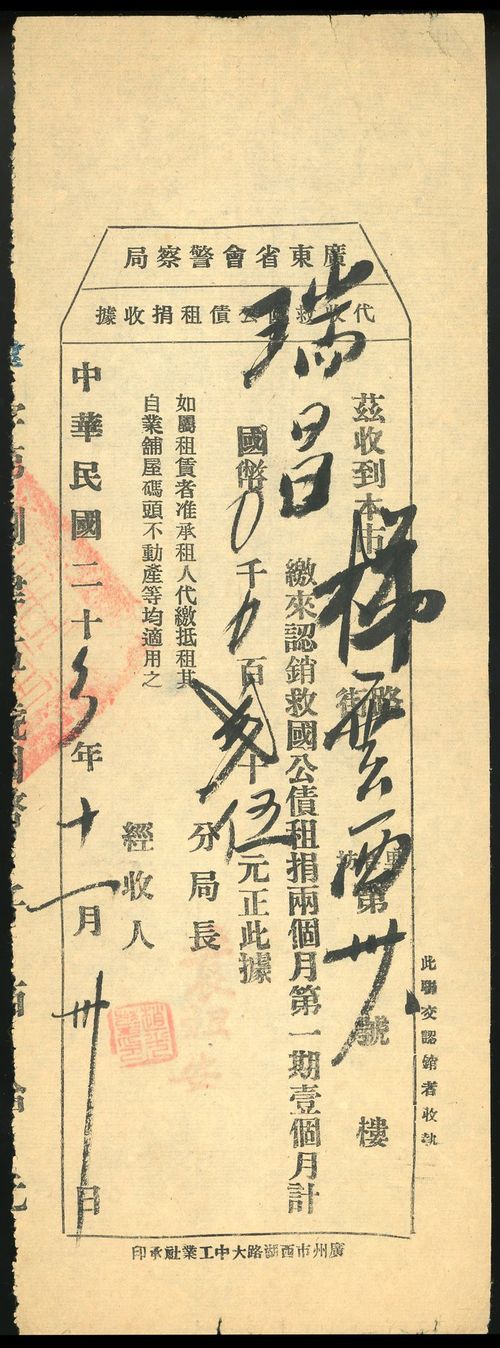 廣東省會警察局
代收救國公債租捐收據
茲收到本市梯雲西路街第卅號樓
瑞昌
繳來認銷救國公債租捐兩個月第一期壹個月計
國幣0千0百 十伍元正此據
如屬租賃者准承租人代繳抵租其
自業舖屋碼頭不動產等均適用之
分局長
經收人
中華民國二十 年十一月卅日
此聯交認銷者收執
廣州市西湖路大中工業社承印